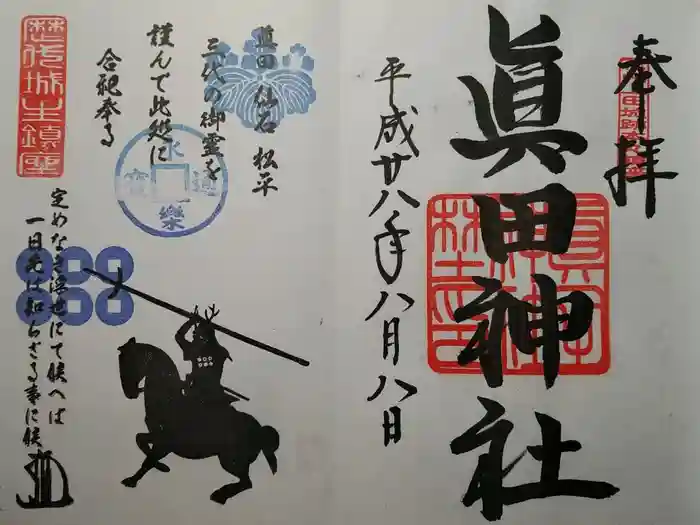 奉拝
眞田神社
平成廿八年八月八日
眞田 仙石 松平
三代の御霊を
謹んで此処に
合祀奉る
歴代城主鎮座
永樂通寳
定めなき浮世にて候へば
一日先は知らざる事に候